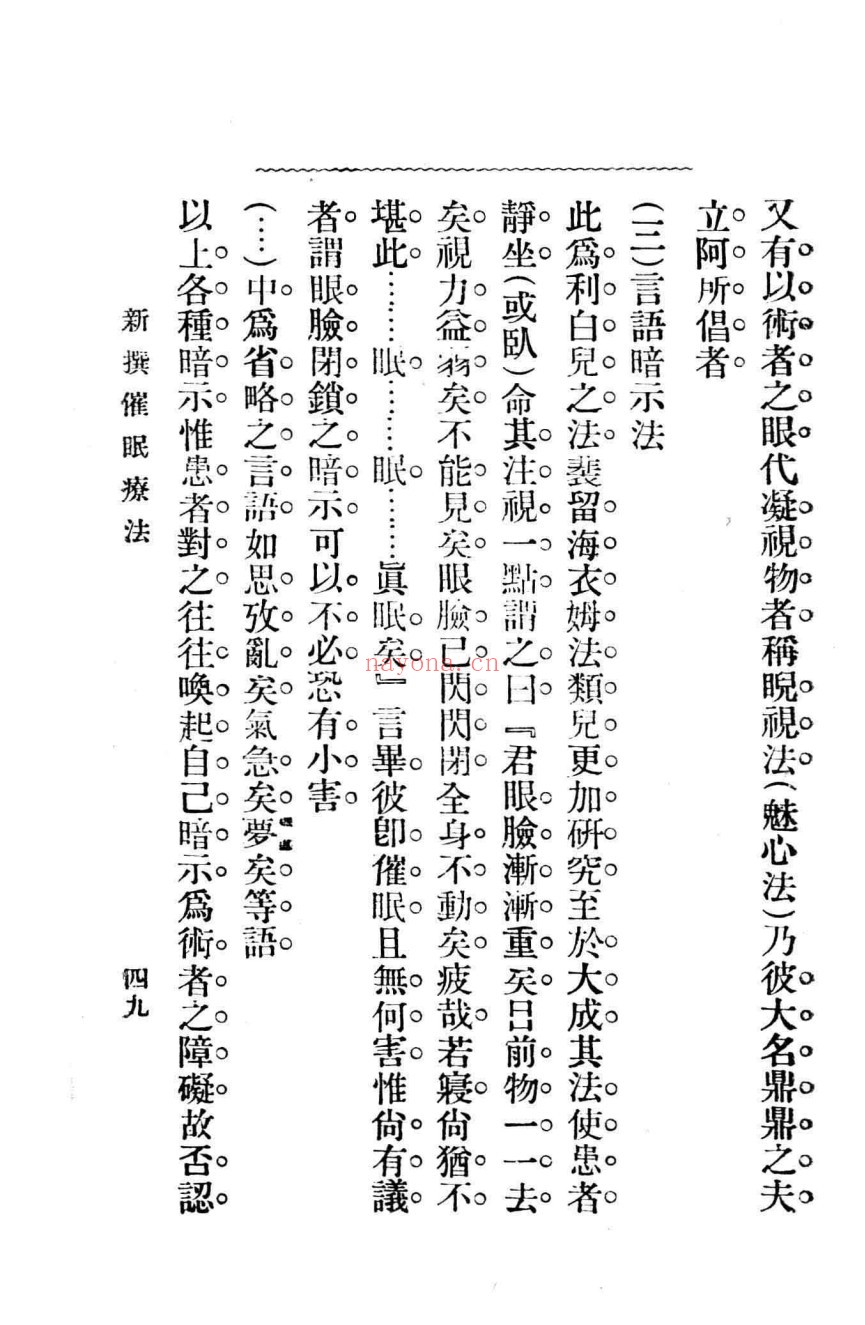 又有以術者之眼代凝視物者稱睨視法(魅心法)乃彼大名鼎鼎之夫
立阿所倡者
(二)言語暗示法
此爲利白兒之法裴留海衣姆法類兒更加硏究至於大成其法使患者
靜坐(或臥)命其注視一點謂之曰『君眼臉漸漸重矣目前物一一去
矣視力益弱矣不能見矣眼臉已閃閃閉全身不動矣疲哉若寢尙猶不
堪此………眠………眠………眞眠矣』言畢彼卽催眠且無何害惟尙有議
者謂眼臉閉鎖之暗示可以不必恐有小害
(……)中爲省略之言語如思攷亂矣氣急矣夢矣等語
以上各種暗示惟患者對之往往喚起自己暗示爲術者之障礙故否認
新撰催眠療法
四九
nayona.cn